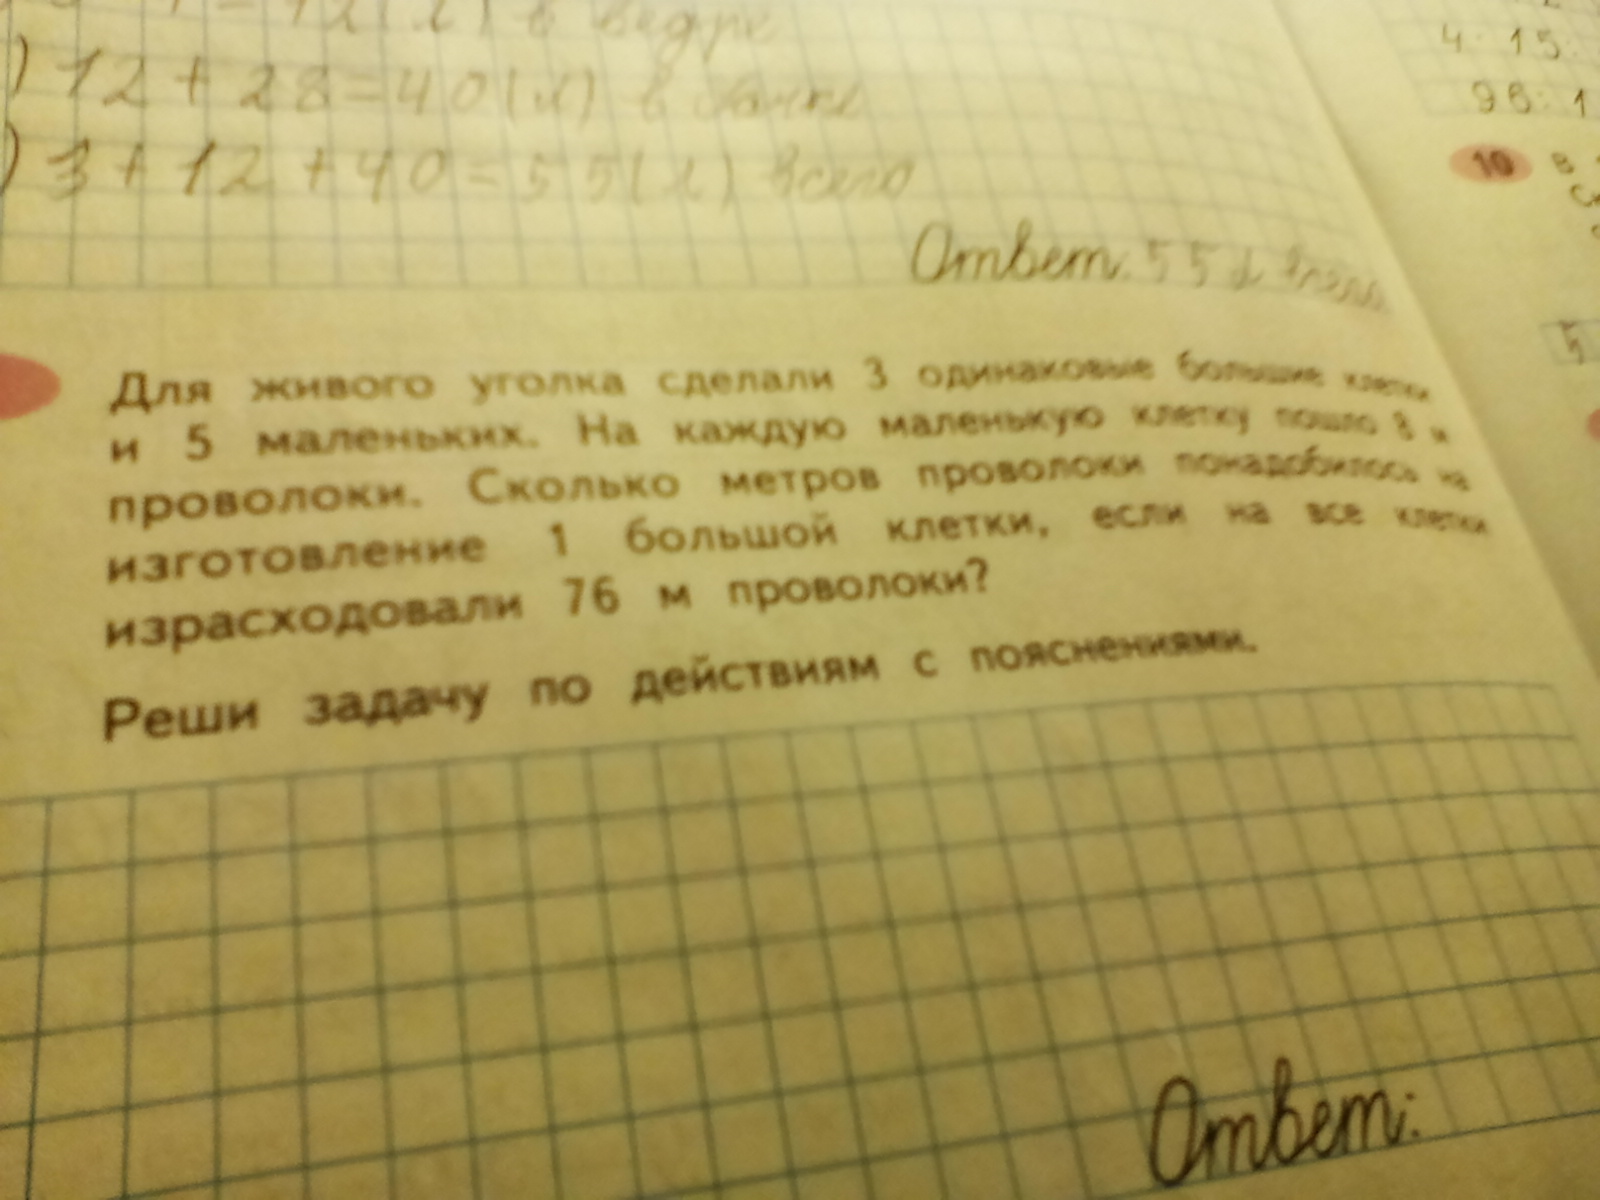 12 + 28 = 40 (л) в бочке
3 + 12 + 40 = 55 (л) всего
Ответ: 55 л всего
4 · 15
96 : 1
10 В
Для живого уголка сделали 3 одинаковые большие клетки
и 5 маленьких. На каждую маленькую клетку пошло 8 м
проволоки. Сколько метров проволоки понадобилось на
изготовление 1 большой клетки, если на все клетки
израсходовали 76 м проволоки?
Реши задачу по действиям с пояснениями.
Ответ: